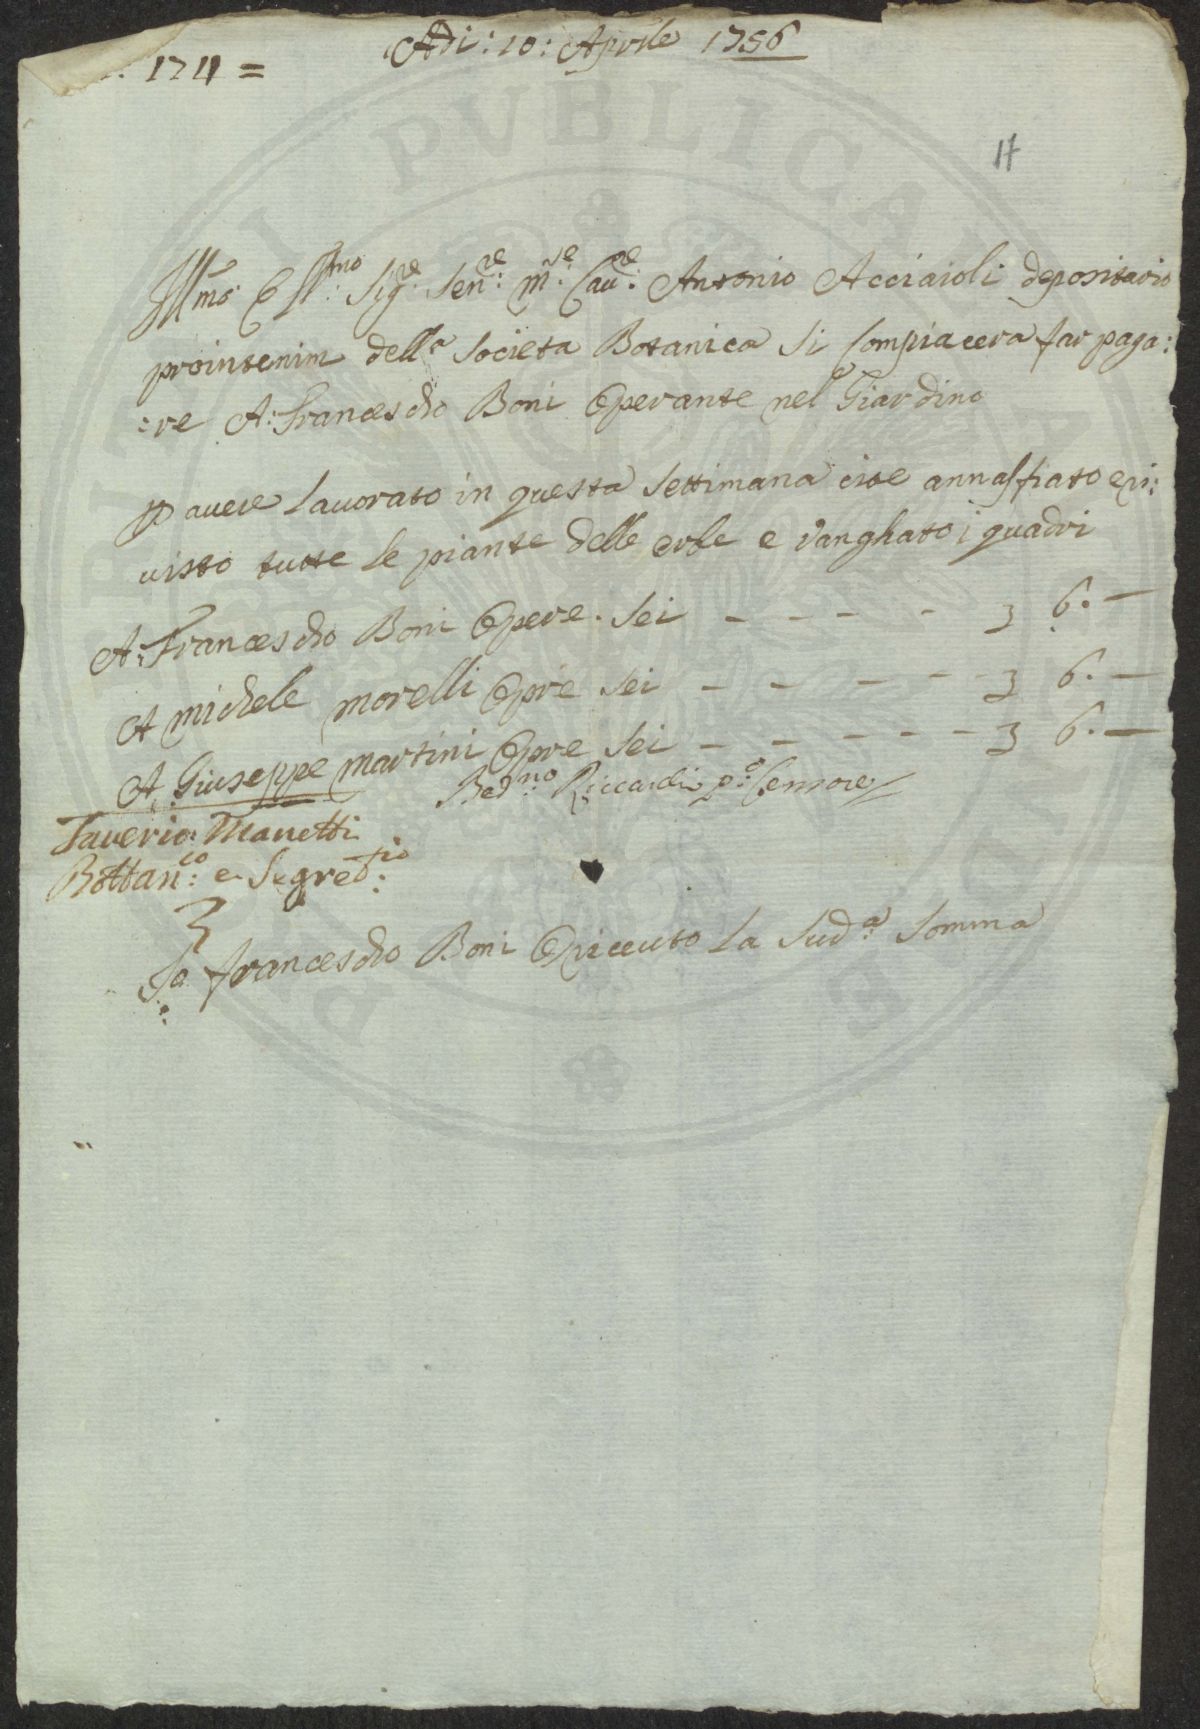 Adi: 10: Aprile 1756
: 171 =
17
Ill.mo: E Il.mo: Sig.re Sen.re: M.se: Cau.re: Antonio Acciaioli depositario
prointenim dell.a Societa Botanica si Compiacera far paga:
:re A: Francescho Boni Operante nel Giardino
p auere lauorato in questa settimana cioe annaffiato e ri:
uisto tutte le piante delle erbe e Vanghato i quadri
A: Francescho Boni Opere. sei - - - - 3 6. —
A Michele Morelli Opre sei - - - - - 3 6. —
A Giuseppe Martini Opre sei - - - - - 3 6. —
Bed.no Riccardi p.o Censore
Saverio: Manetti
Bottan.co: e Segret.rio:
Io Francescho Boni O riceuto la Sud.a Somma